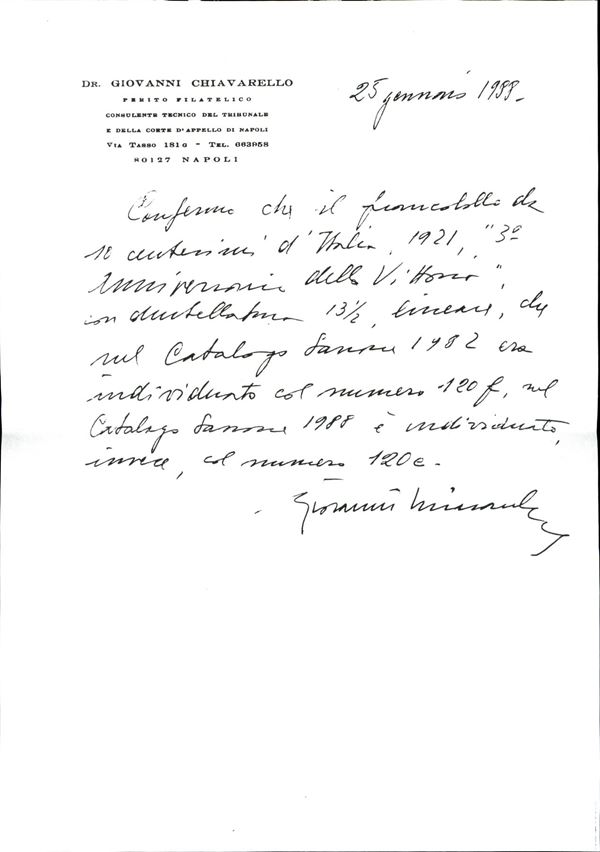 DR. GIOVANNI CHIAVARELLO
PERITO FILATELICO
CONSULENTE TECNICO DEL TRIBUNALE
E DELLA CORTE D'APPELLO DI NAPOLI
VIA TASSO 181G - TEL. 663958
80127 NAPOLI
25 gennaio 1988.
Confermo che il francobollo da
10 centesimi d'Italia, 1921, "3º
Anniversario della Vittoria",
con dentellatura 13½, lineare, che
nel Catalogo Sassone 1982 era
individuato col numero 120f, nel
Catalogo Sassone 1988 è individuato,
invece, col numero 120c.
Giovanni